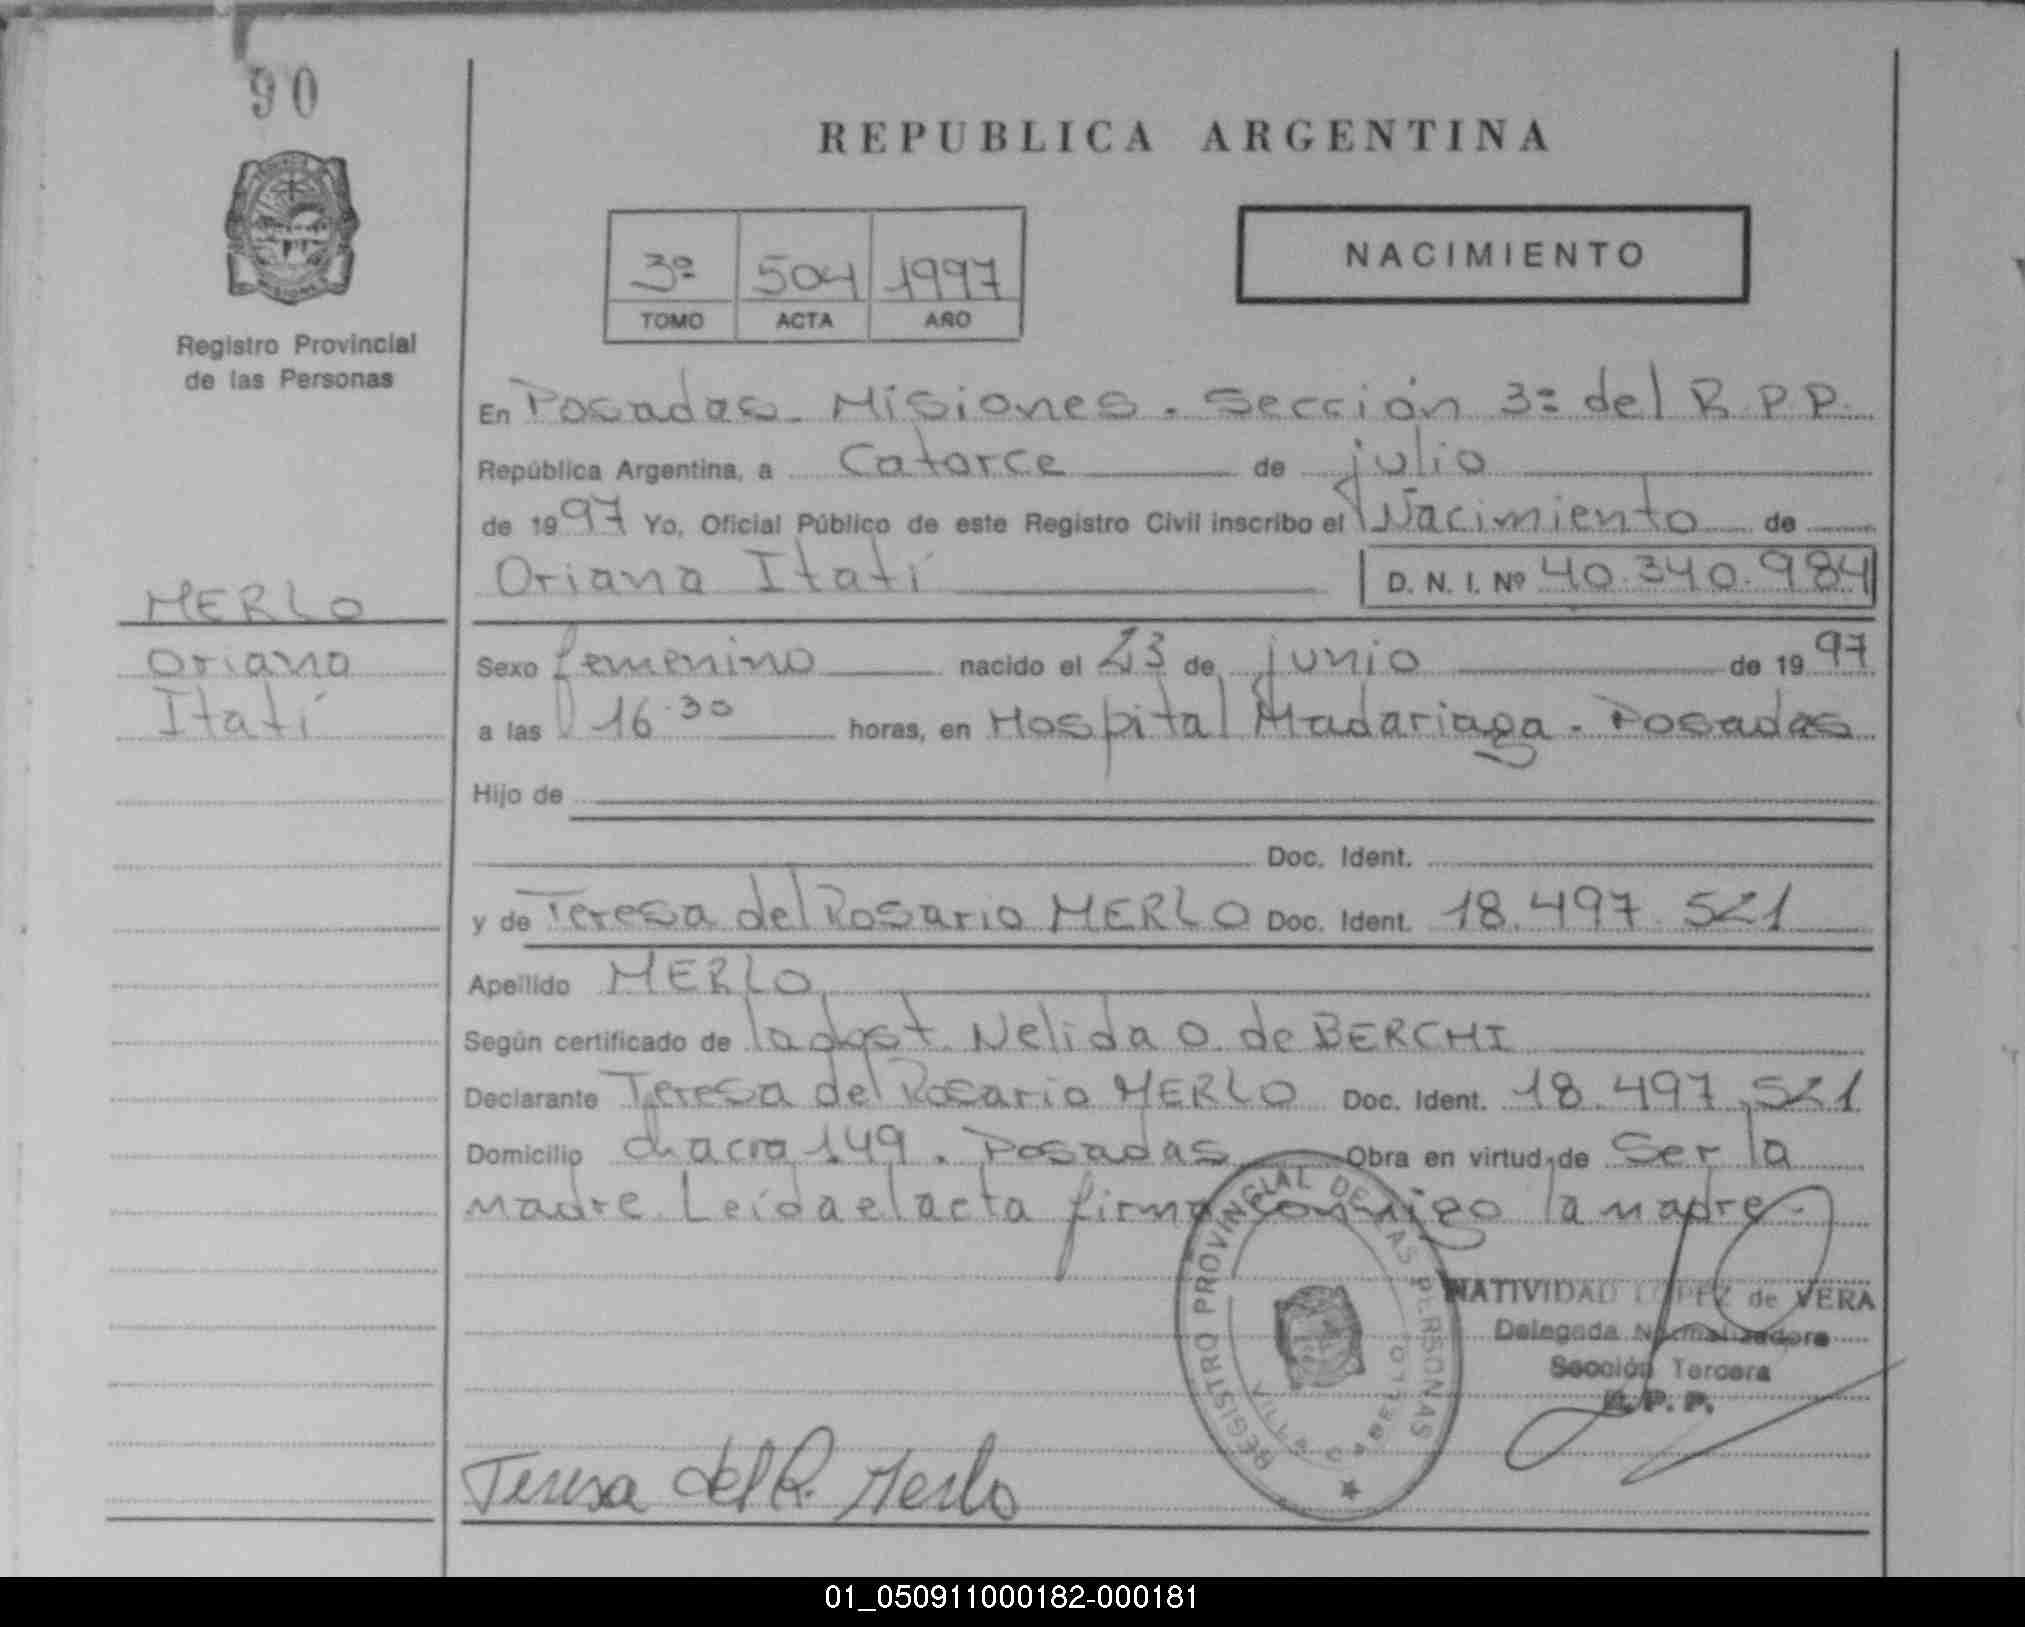 90
REPUBLICA ARGENTINA
3º 504 1997
TOMO ACTA AÑO
NACIMIENTO
Registro Provincial
de las Personas
En Posadas - Misiones. Sección 3ª del R.P.P.
República Argentina, a Catorce de julio
de 1997 Yo, Oficial Público de este Registro Civil inscribo el Nacimiento de
Oriana Itatí D. N. I. Nº 40.340.984
MERLO
Oriana
Itatí
Sexo femenino nacido el 23 de junio de 1997
a las 16.30 horas, en Hospital Madariaga - Posadas
Hijo de
Doc. Ident.
y de Teresa del Rosario MERLO Doc. Ident. 18.497.521
Apellido MERLO
Según certificado de la obst. Nelida O. de BERCHI
Declarante Teresa del Rosario MERLO Doc. Ident. 18.497.521
Domicilio chacra 149. Posadas Obra en virtud de Ser la
madre. Leída el acta firma conmigo la madre.
REGISTRO PROVINCIAL DE LAS PERSONAS
NATIVIDAD LOPEZ de VERA
Delegada Normalizadora
Sección Tercera
R. P. P.
Teresa del R. Merlo
01_050911000182-000181